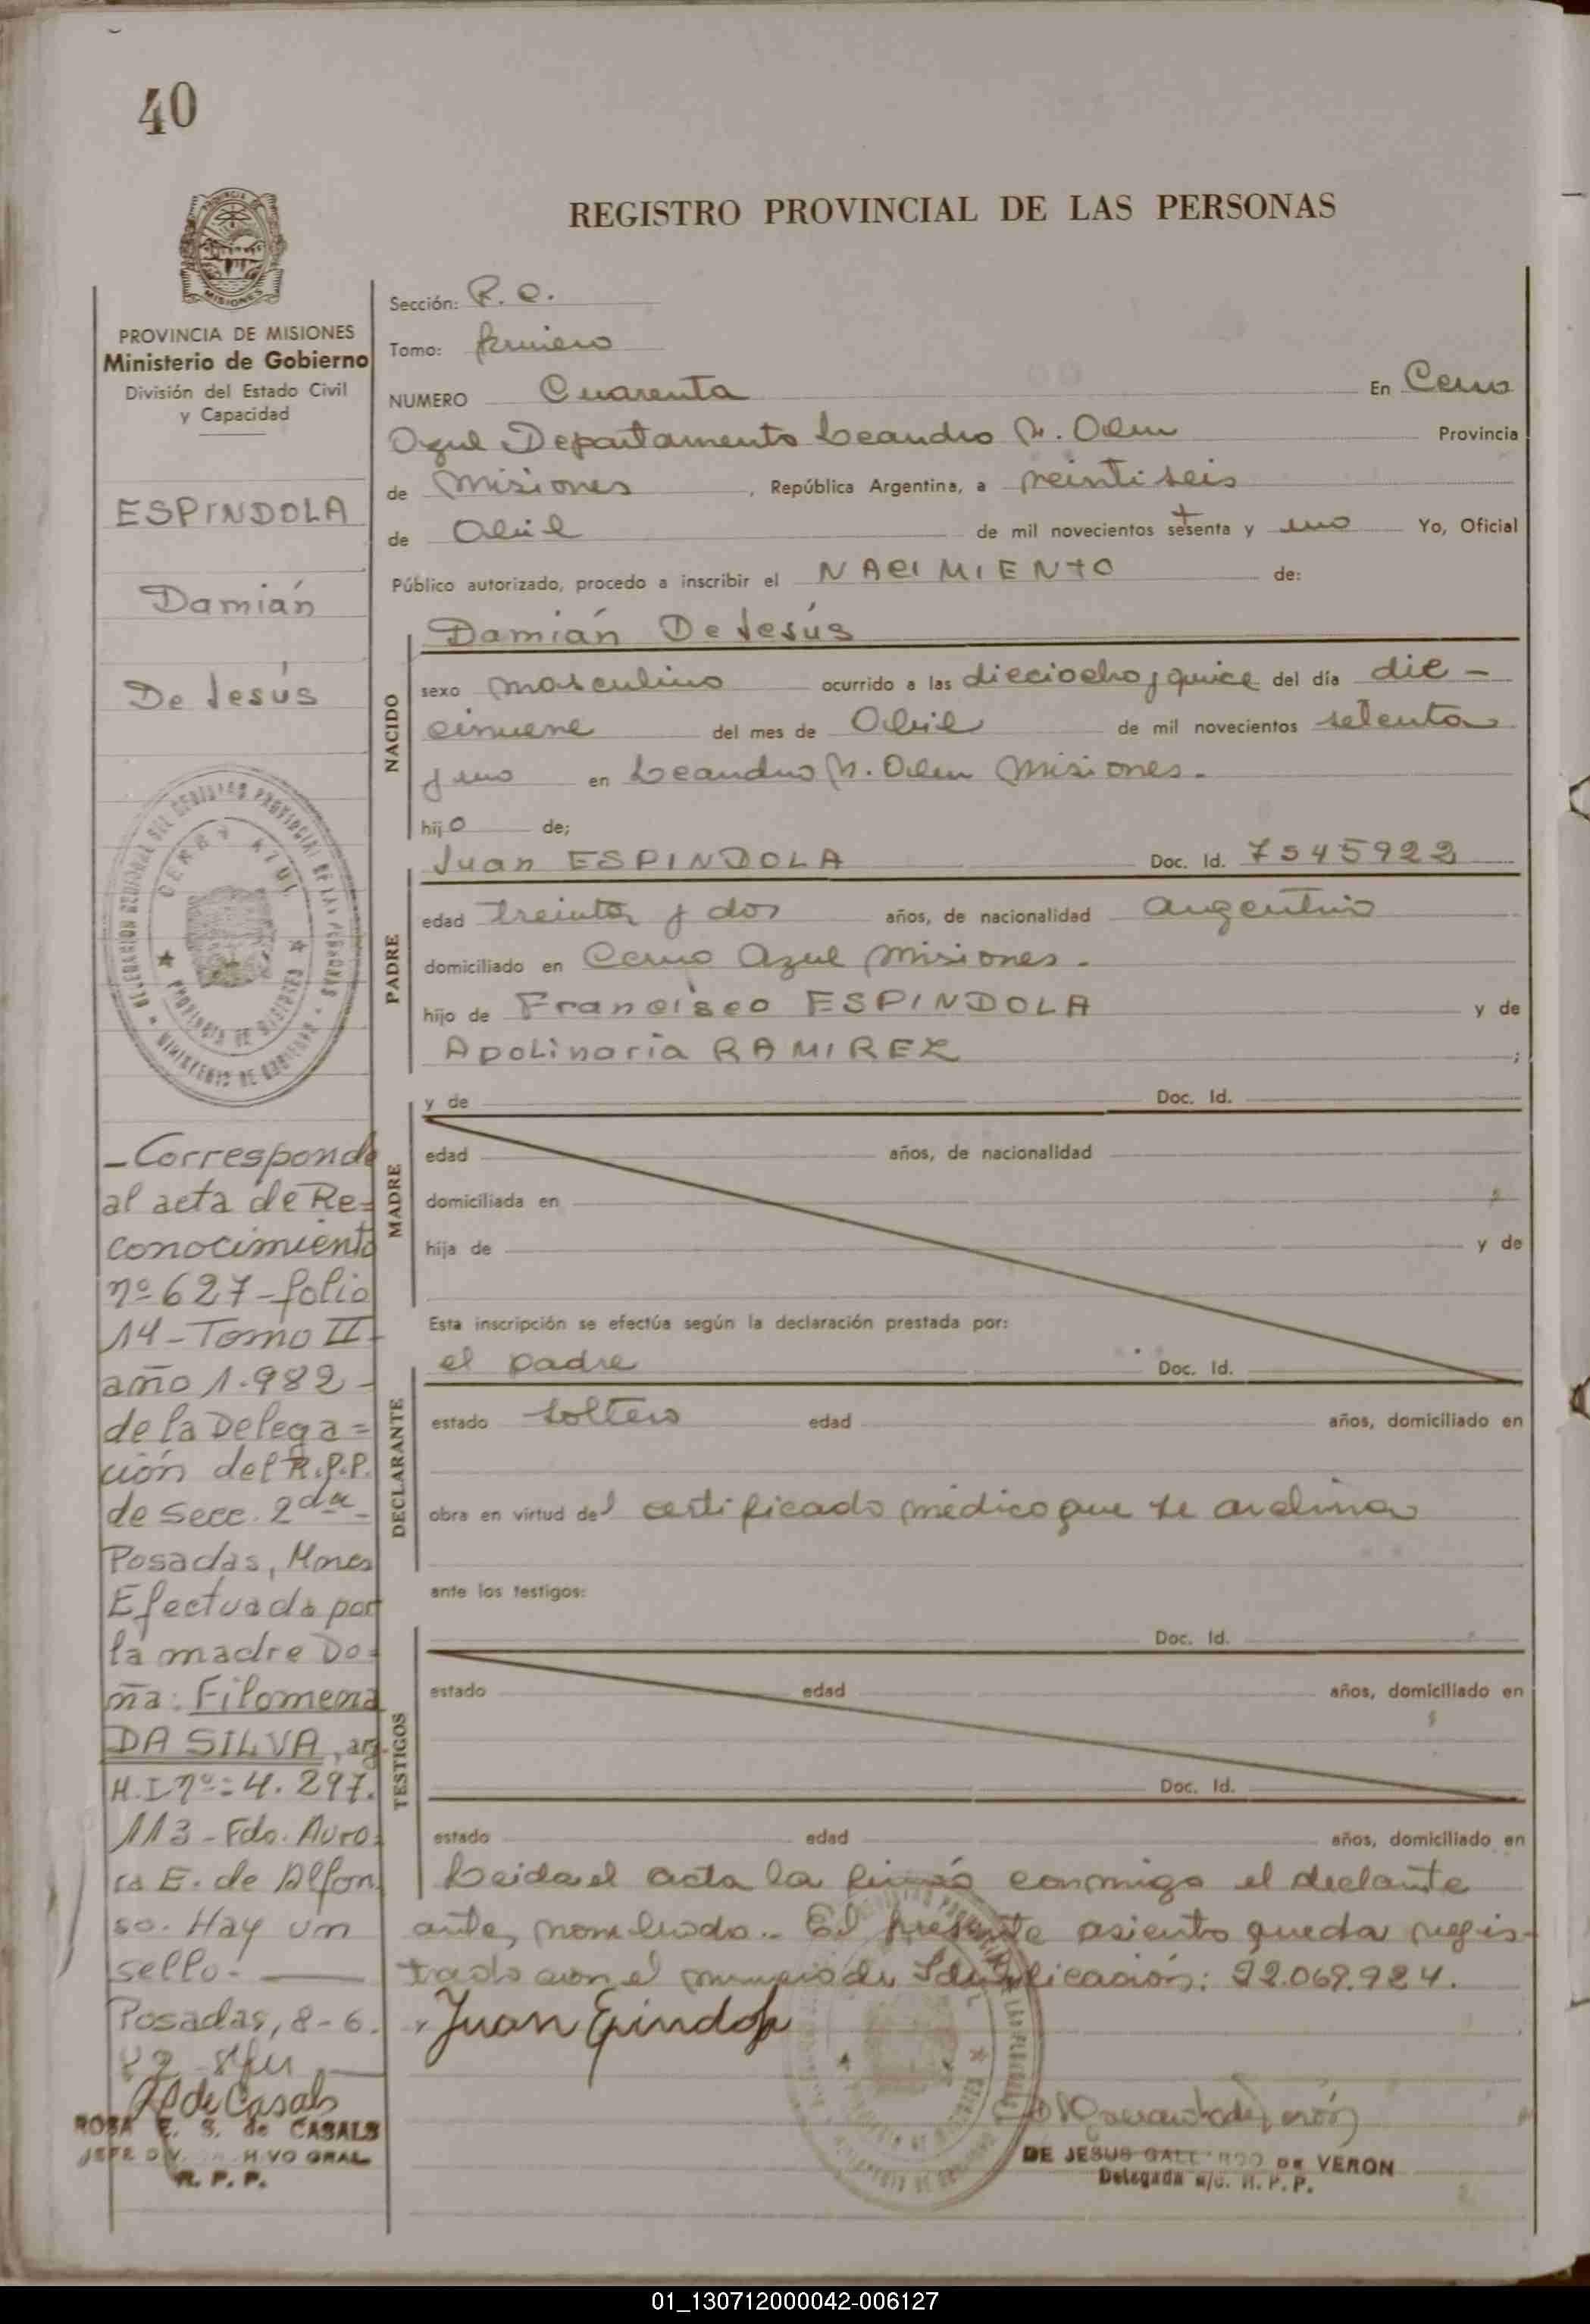 40
REGISTRO PROVINCIAL DE LAS PERSONAS
PROVINCIA DE MISIONES
Ministerio de Gobierno
División del Estado Civil
y Capacidad
ESPINDOLA
Damián
De Jesús
DELEGACION REGIONAL DEL REGISTRO PROVINCIAL DE LAS PERSONAS
CERRO AZUL
PROVINCIA DE MISIONES
MINISTERIO DE GOBIERNO
- Corresponde
al acta de Re=
conocimiento
nº 627 - folio
14 - Tomo II -
año 1.982 -
de la Delega=
ción del R.P.P.
de Secc. 2da -
Posadas, Mnes
Efectuada por
la madre Do=
ña: Filomena
DA SILVA, arg.
M.I. nº: 4.297.
113 - Fdo. Auro=
ra E. de Alfon
so. Hay un
sello. -
Posadas, 8-6.
82
R S de Casals
ROSA E. S. de CASALS
JEFE DIV. ARCHIVO GRAL
R. P. P.
Sección: R. C.
Tomo: Primero
NUMERO Cuarenta En Cerro
Azul Departamento Leandro N. Alem Provincia
de Misiones, República Argentina, a veintiseis
de Abril de mil novecientos setenta y uno Yo, Oficial
Público autorizado, procedo a inscribir el NACIMIENTO de:
NACIDO
Damián De Jesús
sexo masculino ocurrido a las dieciocho y quince del día die -
cinueve del mes de Abril de mil novecientos setenta
y uno en Leandro N. Alem Misiones. -
hijo de;
PADRE
Juan ESPINDOLA Doc. Id. 7545922
edad treinta y dos años, de nacionalidad argentino
domiciliado en Cerro Azul Misiones -
hijo de Francisco ESPINDOLA y de
Apolinaria RAMIREZ ;
MADRE
y de Doc. Id.
edad años, de nacionalidad
domiciliada en
hija de y de
Esta inscripción se efectúa según la declaración prestada por:
DECLARANTE
el padre Doc. Id.
estado soltero edad años, domiciliado en
obra en virtud del certificado médico que se archiva
ante los testigos:
TESTIGOS
Doc. Id.
estado edad años, domiciliado en
Doc. Id.
estado edad años, domiciliado en
Leida el acta la firmó conmigo el declante
antes nombrado.. El presente asiento queda regis-
trado con el numero de Identificación: 22.069.924.
Juan Epindola
DE JESUS GALLARDO DE VERON
Delegada a/c. R. P. P.
01_130712000042-006127